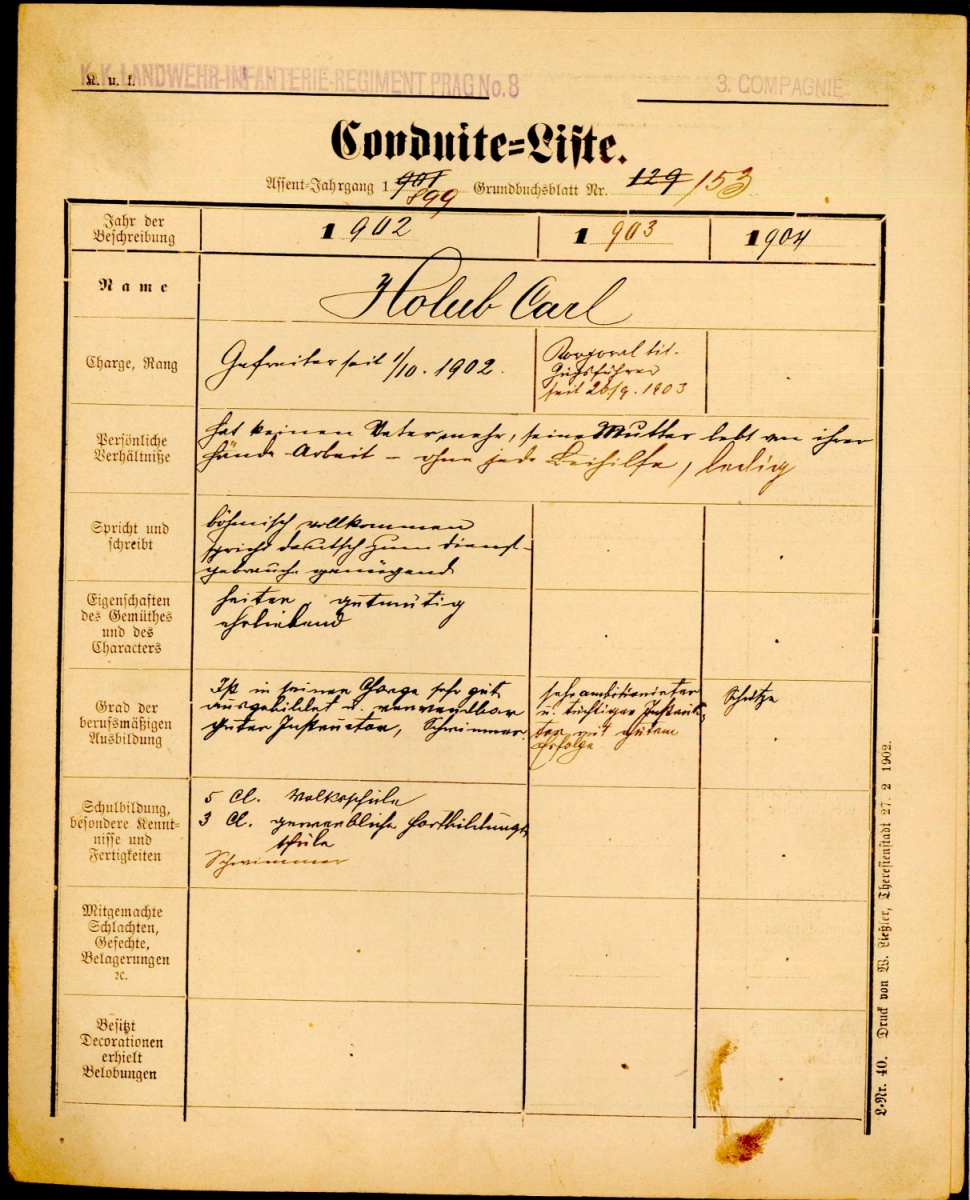 K. u. k.
K.K. LANDWEHR-INFANTERIE-REGIMENT PRAG No. 8
3. COMPAGNIE
Conduite=Liste.
Assent=Jahrgang 1 901 899 Grundbuchsblatt Nr. 129 /153
Jahr der
Beschreibung
1 902
1 903
1904
Name
Holub Carl
Charge, Rang
Gefreiter seit 1/10. 1902.
Korporal tit.
Zugsführer
seit 26/9. 1903
Persönliche
Verhältniße
hat keinen Vater mehr, seine Mutter lebt von ihrer
Hände Arbeit – ohne jede Beihilfe, ledig
Spricht und
schreibt
böhmisch vollkommen
spricht deutsch zum Dienst-
gebrauche genügend
Eigenschaften
des Gemüthes
und des
Characters
heiter, gutmütig
ehrliebend
Grad der
berufsmäßigen
Ausbildung
Ist in seiner Charge sehr gut
ausgebildet u. verwendbar
guter Instructor, Schwimmer.
sehr ambitionierter
u. tüchtiger Instruk-
tor mit gutem
Erfolge
Schütze
Schulbildung,
besondere Kennt-
nisse und
Fertigkeiten
5 Cl. Volksschule
3 Cl. gewerbliche Fortbildungs
schule
Schwimmer
Mitgemachte
Schlachten,
Gefechte,
Belagerungen
2c.
Besitzt
Decorationen
erhielt
Belobungen
L-Nr. 40. Druck von W. Ließler, Theresienstadt 27. 2 1902.